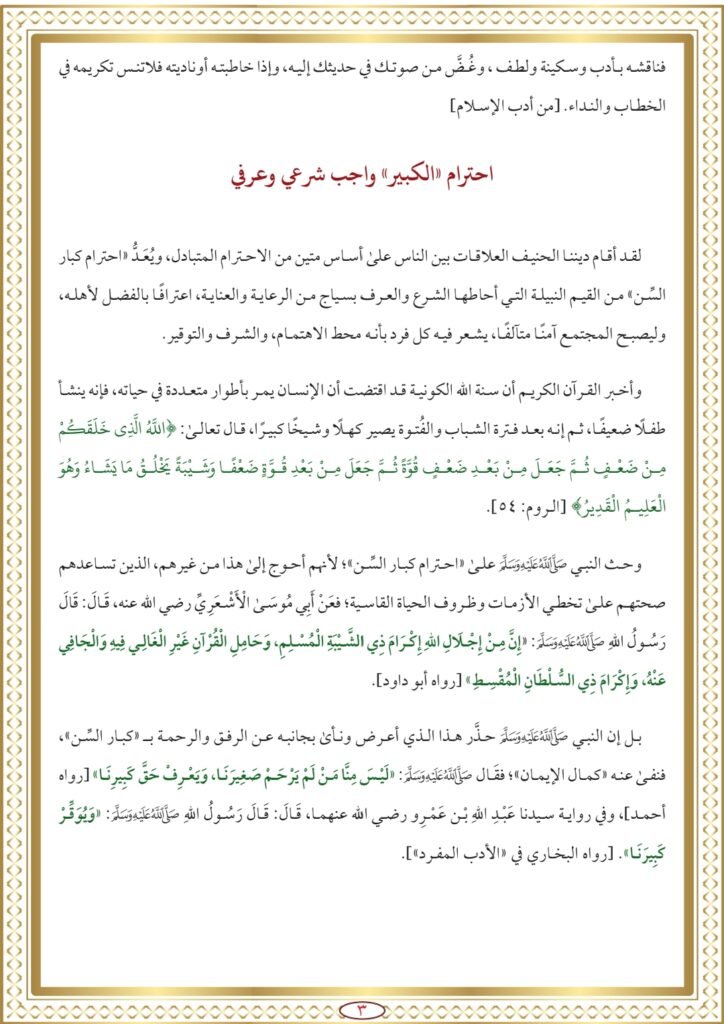 فناقشه بأدب وسكينة ولطف ، وغُضَّ من صوتك في حديثك إليه، وإذا خاطبته أوناديته فلاتنس تكريمه في
الخطاب والنداء. [من أدب الإسلام]
احترام «الكبير» واجب شرعي وعرفي
لقد أقام ديننا الحنيف العلاقات بين الناس علىٰ أساس متين من الاحترام المتبادل، ويُعَدُّ «احترام كبار
السِّن» من القيم النبيلة التي أحاطها الشرع والعرف بسياج من الرعاية والعناية، اعترافًا بالفضل لأهله،
وليصبح المجتمع آمنًا متآلفًا، يشعر فيه كل فرد بأنه محط الاهتمام، والشرف والتوقير.
وأخبر القرآن الكريم أن سنة الله الكونية قد اقتضت أن الإنسان يمر بأطوار متعددة في حياته، فإنه ينشأ
طفلًا ضعيفًا، ثم إنه بعد فترة الشباب والفُتوة يصير كهلًا وشيخًا كبيرًا، قال تعالىٰ: ﴿اللَّهُ الَّذِى خَلَقَكُمْ
مِنْ ضَعْفٍ ثُمَّ جَعَلَ مِنْ بَعْدِ ضَعْفٍ قُوَّةً ثُمَّ جَعَلَ مِنْ بَعْدِ قُوَّةٍ ضَعْفًا وَشَيْبَةً يَخْلُقُ مَا يَشَاءُ وَهُوَ
الْعَلِيمُ الْقَدِيرُ﴾ [الروم: ٥٤].
وحث النبي ﷺ علىٰ «احترام كبار السِّن»؛ لأنهم أحوج إلىٰ هذا من غيرهم، الذين تساعدهم
صحتهم علىٰ تخطي الأزمات وظروف الحياة القاسية؛ فعَنْ أَبِي مُوسَىٰ الْأَشْعَرِيِّ رضي الله عنه، قَالَ: قَالَ
رَسُولُ اللهِ ﷺ: «إِنَّ مِنْ إِجْلَالِ اللهِ إِكْرَامَ ذِي الشَّيْبَةِ الْمُسْلِمِ، وَحَامِلِ الْقُرْآنِ غَيْرِ الْغَالِي فِيهِ وَالْجَافِي
عَنْهُ، وَإِكْرَامَ ذِي السُّلْطَانِ الْمُقْسِطِ» [رواه أبو داود].
بل إن النبي ﷺ حذَّر هذا الذي أعرض ونأىٰ بجانبه عن الرفق والرحمة بـ «كبار السِّن»،
فنفىٰ عنه «كمال الإيمان»؛ فقَال ﷺ: «لَيْسَ مِنَّا مَنْ لَمْ يَرْحَمْ صَغِيرَنَا، وَيَعْرِفْ حَقَّ كَبِيرِنَا» [رواه
أحمد]، وفي رواية سيدنا عَبْدِ اللهِ بْنِ عَمْرِو رضي الله عنهما، قَالَ: قَالَ رَسُولُ اللهِ ﷺ: «وَيُوَقِّرْ
كَبِيرَنَا». [رواه البخاري في «الأدب المفرد»].
٣